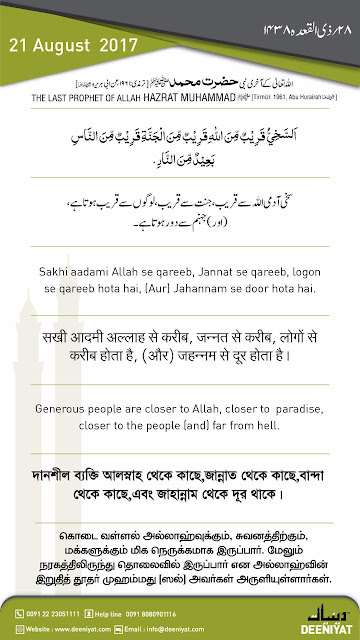 ۲۸/ذی القعدہ ۱۴۳۸ھ
21 August 2017
اللہ تعالیٰ کے آخری نبی حضرت محمد ﷺ
THE LAST PROPHET OF ALLAH HAZRAT MUHAMMAD ﷺ [Tirmizi: 1961, Abu Hurairah]
اَلسَّخِيُّ قَرِيْبٌ مِّنَ اللّٰهِ قَرِيْبٌ مِّنَ الْجَنَّةِ قَرِيْبٌ مِّنَ النَّاسِ
بَعِيْدٌ مِّنَ النَّارِ.
سخی آدمی اللہ سے قریب، جنت سے قریب، لوگوں سے قریب ہوتا ہے،
(اور) جہنم سے دور ہوتا ہے۔
Sakhi aadami Allah se qareeb, Jannat se qareeb, logon
se qareeb hota hai, (Aur) Jahannam se door hota hai.
सखी आदमी अल्लाह से करीब, जन्नत से करीब, लोगों से
करीब होता है, (और) जहन्नम से दूर होता है।
Generous people are closer to Allah, closer to paradise,
closer to the people (and) far from hell.
দানশীল ব্যক্তি আলস্নাহ থেকে কাছে,জান্নাত থেকে কাছে,বান্দা
থেকে কাছে,এবং জাহান্নাম থেকে দূর থাকে।
கொடை வள்ளல் அல்லாஹ்வுக்கும், சுவனத்திற்கும்,
மக்களுக்கும் மிக நெருக்கமாக இருப்பார். மேலும்
நரகத்திலிருந்து தொலைவில் இருப்பார் என அல்லாஹ்வின்
இறுதித் தூதர் முஹம்மது [ஸல்] அவர்கள் அருளியுள்ளார்கள்.
0091 22 23051111 Help line 0091 8080901116
Website : www.deeniyat.com Email : info@deeniyat.com
DEENIYAT